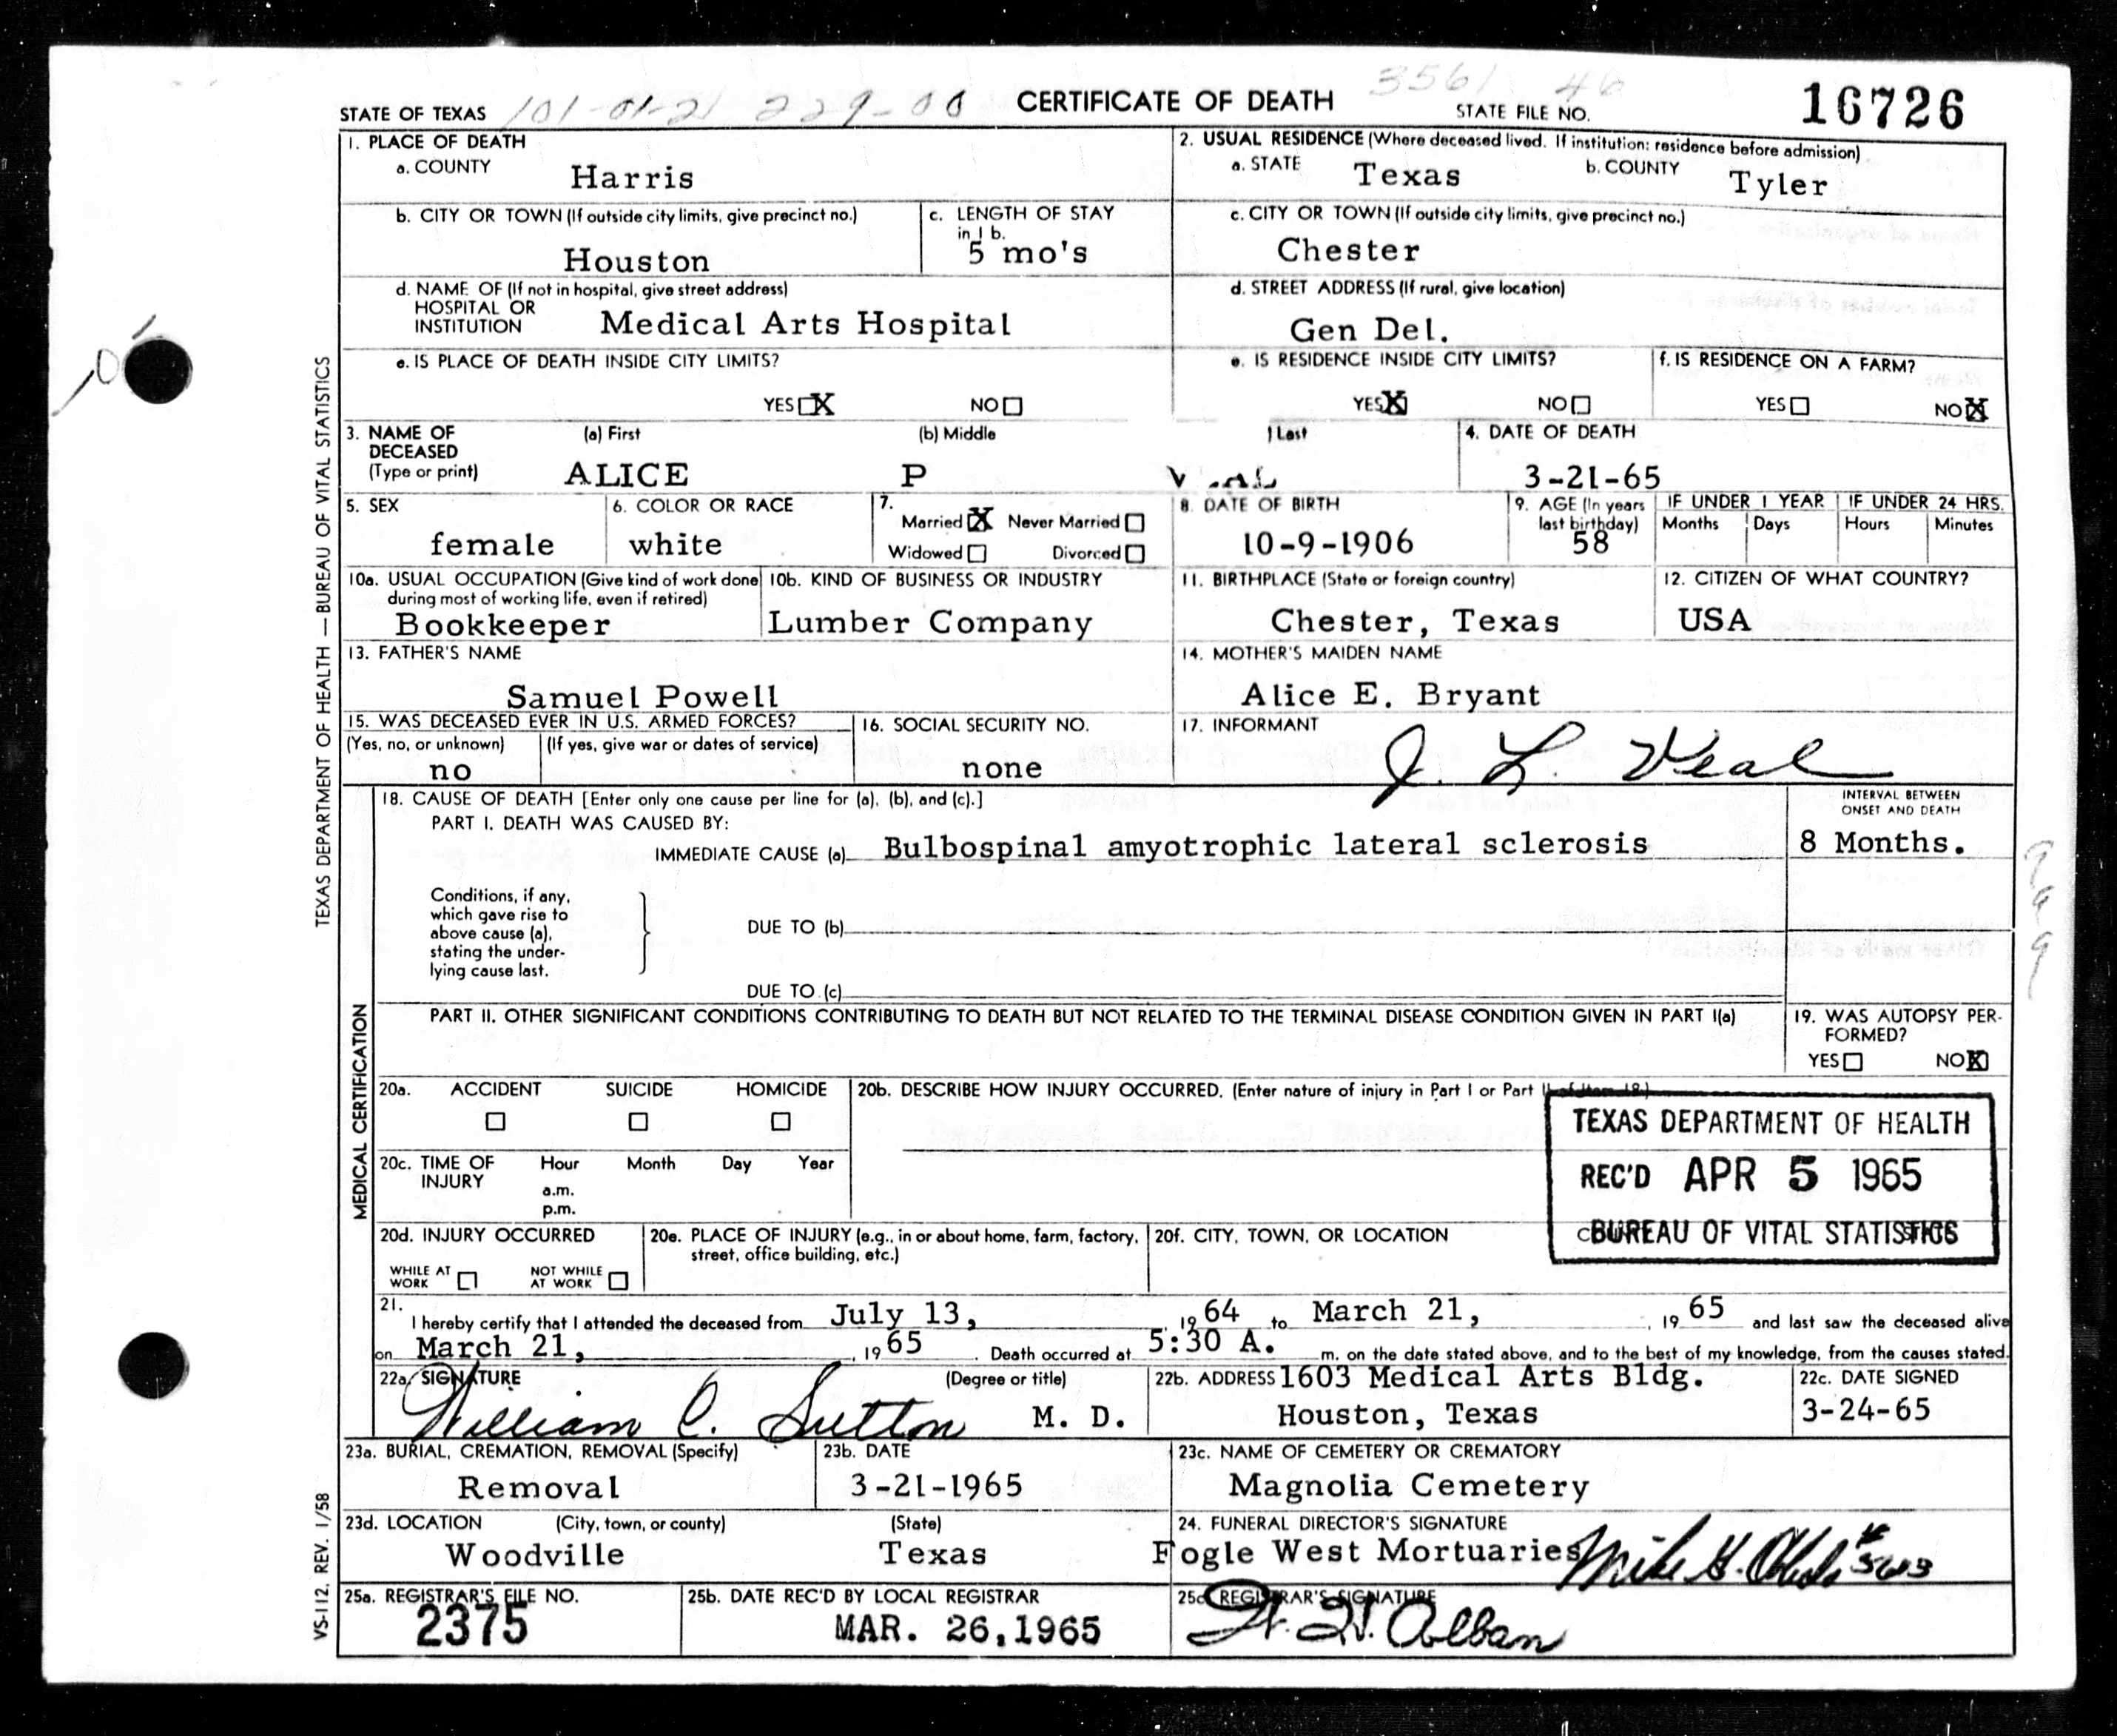 STATE OF TEXAS 101-01-21 229-00 CERTIFICATE OF DEATH 3561 46 STATE FILE NO. 16726
1. PLACE OF DEATH
a. COUNTY Harris
2. USUAL RESIDENCE (Where deceased lived. If institution: residence before admission)
a. STATE Texas b. COUNTY Tyler
b. CITY OR TOWN (If outside city limits, give precinct no.)
Houston
c. LENGTH OF STAY
in 1 b.
5 mo's
c. CITY OR TOWN (If outside city limits, give precinct no.)
Chester
d. NAME OF (If not in hospital, give street address)
HOSPITAL OR
INSTITUTION Medical Arts Hospital
d. STREET ADDRESS (If rural, give location)
Gen Del.
e. IS PLACE OF DEATH INSIDE CITY LIMITS?
YES X NO
e. IS RESIDENCE INSIDE CITY LIMITS?
YES X NO
f. IS RESIDENCE ON A FARM?
YES NO X
3. NAME OF
DECEASED
(Type or print)
(a) First (b) Middle Last
ALICE P
4. DATE OF DEATH
3-21-65
5. SEX
female
6. COLOR OR RACE
white
7.
Married X Never Married
Widowed Divorced
8. DATE OF BIRTH
10-9-1906
9. AGE (In years
last birthday)
58
IF UNDER 1 YEAR
Months Days
IF UNDER 24 HRS.
Hours Minutes
10a. USUAL OCCUPATION (Give kind of work done
during most of working life, even if retired)
Bookkeeper
10b. KIND OF BUSINESS OR INDUSTRY
Lumber Company
11. BIRTHPLACE (State or foreign country)
Chester, Texas
12. CITIZEN OF WHAT COUNTRY?
USA
13. FATHER'S NAME
Samuel Powell
14. MOTHER'S MAIDEN NAME
Alice E. Bryant
15. WAS DECEASED EVER IN U.S. ARMED FORCES?
(Yes, no, or unknown) (If yes, give war or dates of service)
no
16. SOCIAL SECURITY NO.
none
17. INFORMANT
J. L. Veal
18. CAUSE OF DEATH [Enter only one cause per line for (a), (b), and (c).]
PART I. DEATH WAS CAUSED BY:
IMMEDIATE CAUSE (a) Bulbospinal amyotrophic lateral sclerosis
INTERVAL BETWEEN
ONSET AND DEATH
8 Months.
Conditions, if any,
which gave rise to
above cause (a),
stating the under-
lying cause last.
DUE TO (b)
DUE TO (c)
PART II. OTHER SIGNIFICANT CONDITIONS CONTRIBUTING TO DEATH BUT NOT RELATED TO THE TERMINAL DISEASE CONDITION GIVEN IN PART I(a)
19. WAS AUTOPSY PER-
FORMED?
YES NO X
20a. ACCIDENT SUICIDE HOMICIDE
20b. DESCRIBE HOW INJURY OCCURRED. (Enter nature of injury in Part I or Part II of Item 18.)
TEXAS DEPARTMENT OF HEALTH
REC'D APR 5 1965
BUREAU OF VITAL STATISTICS
20c. TIME OF
INJURY
Hour Month Day Year
a.m.
p.m.
20d. INJURY OCCURRED
WHILE AT
WORK
NOT WHILE
AT WORK
20e. PLACE OF INJURY (e.g., in or about home, farm, factory,
street, office building, etc.)
20f. CITY, TOWN, OR LOCATION
21.
I hereby certify that I attended the deceased from July 13, 19 64 to March 21, 19 65 and last saw the deceased alive
on March 21, 19 65. Death occurred at 5:30 A. m. on the date stated above, and to the best of my knowledge, from the causes stated.
22a. SIGNATURE (Degree or title)
William C. Sutton M. D.
22b. ADDRESS 1603 Medical Arts Bldg.
Houston, Texas
22c. DATE SIGNED
3-24-65
23a. BURIAL, CREMATION, REMOVAL (Specify)
Removal
23b. DATE
3-21-1965
23c. NAME OF CEMETERY OR CREMATORY
Magnolia Cemetery
23d. LOCATION (City, town, or county) (State)
Woodville Texas
24. FUNERAL DIRECTOR'S SIGNATURE
Fogle West Mortuaries
25a. REGISTRAR'S FILE NO.
2375
25b. DATE REC'D BY LOCAL REGISTRAR
MAR. 26,1965
25c. REGISTRAR'S SIGNATURE
Alban
TEXAS DEPARTMENT OF HEALTH — BUREAU OF VITAL STATISTICS
MEDICAL CERTIFICATION
VS-112, REV. 1/58